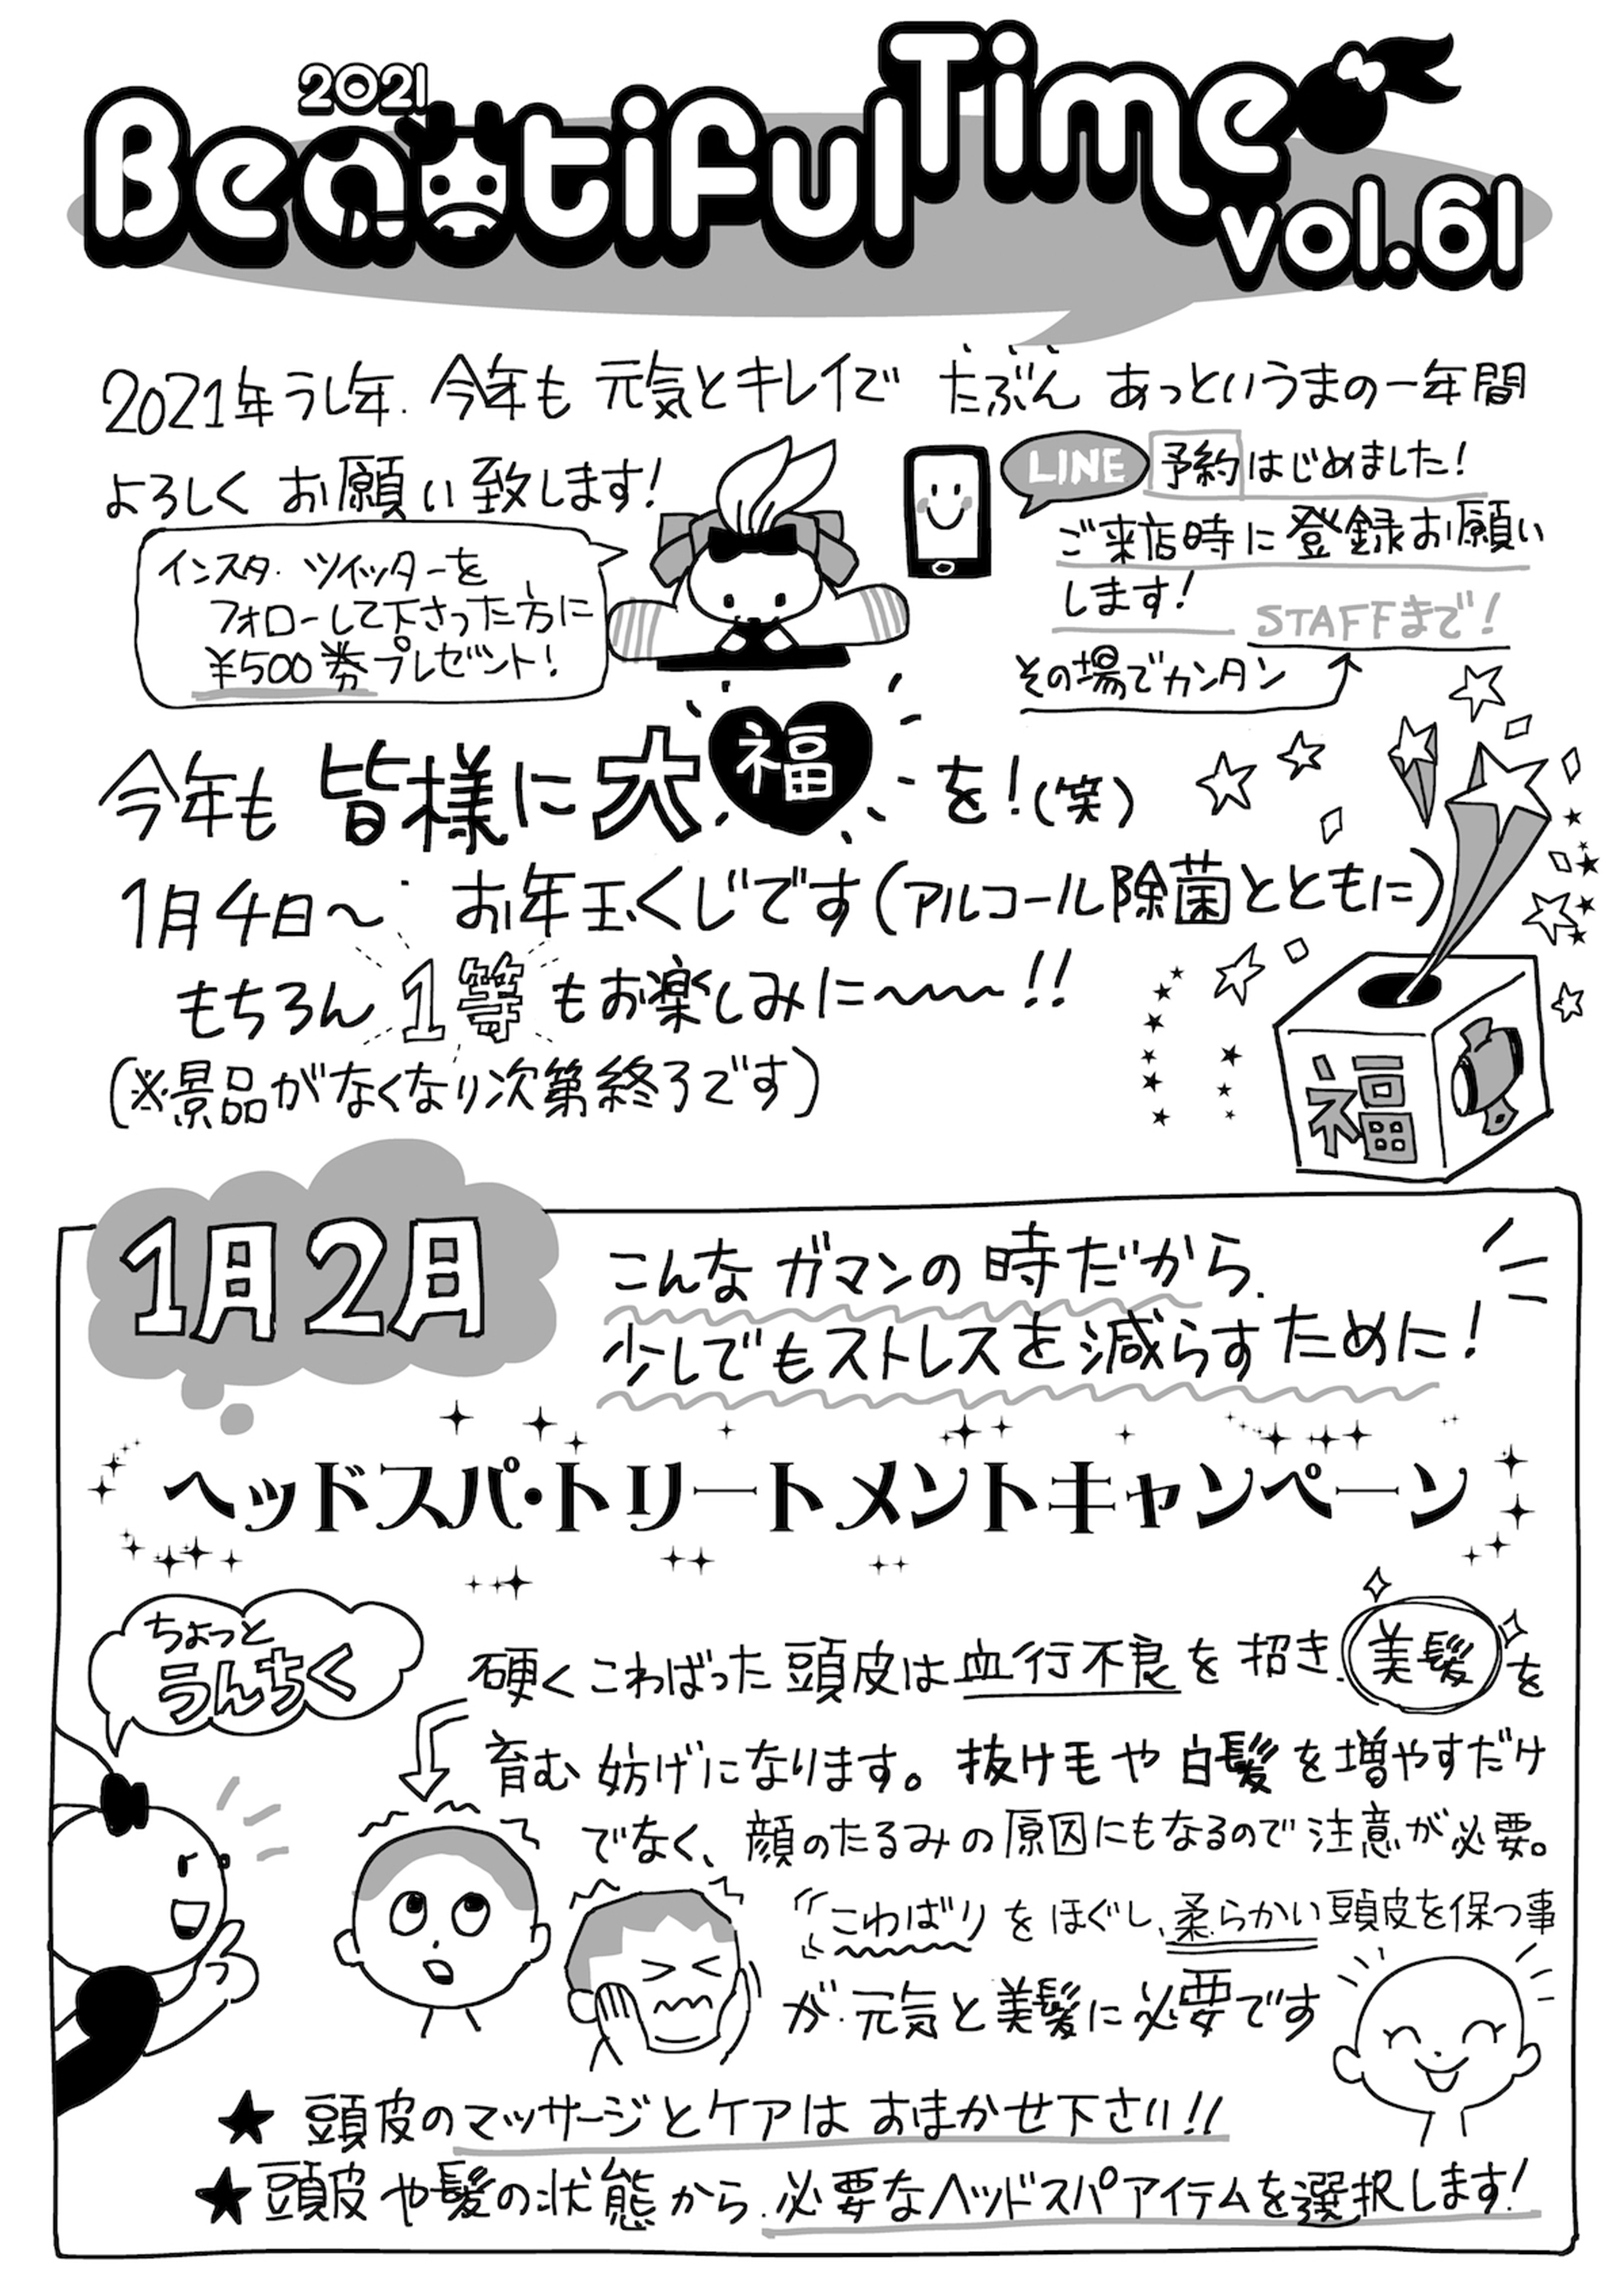 2021
Beautiful Time
vol.61
2021年うし年. 今年も 元気とキレイで たぶん あっというまの一年間
よろしく お願い致します!
インスタ・ツイッターを
フォローして下さった方に
¥500券プレゼント!
LINE 予約はじめました!
ご来店時に登録お願い
します!
STAFFまで!
その場でカンタン
今年も 皆様に大福を!(笑)
1月4日〜 お年玉くじです(アルコール除菌とともに)
もちろん 1等 もお楽しみに〜〜〜!!
(※景品がなくなり次第終了です)
福
1月2月
こんな ガマンの時だから.
少しでもストレスを減らすために!
ヘッドスパ・トリートメントキャンペーン
ちょっと
うんちく
硬くこわばった頭皮は血行不良を招き、美髪を
育む妨げになります。抜け毛や白髪を増やすだけ
でなく、顔のたるみの原因にもなるので注意が必要。
こわばりをほぐし、柔らかい頭皮を保つ事
が元気と美髪に必要です
★ 頭皮のマッサージとケアは おまかせ下さい!!
★頭皮や髪の状態から.必要なヘッドスパアイテムを選択します!